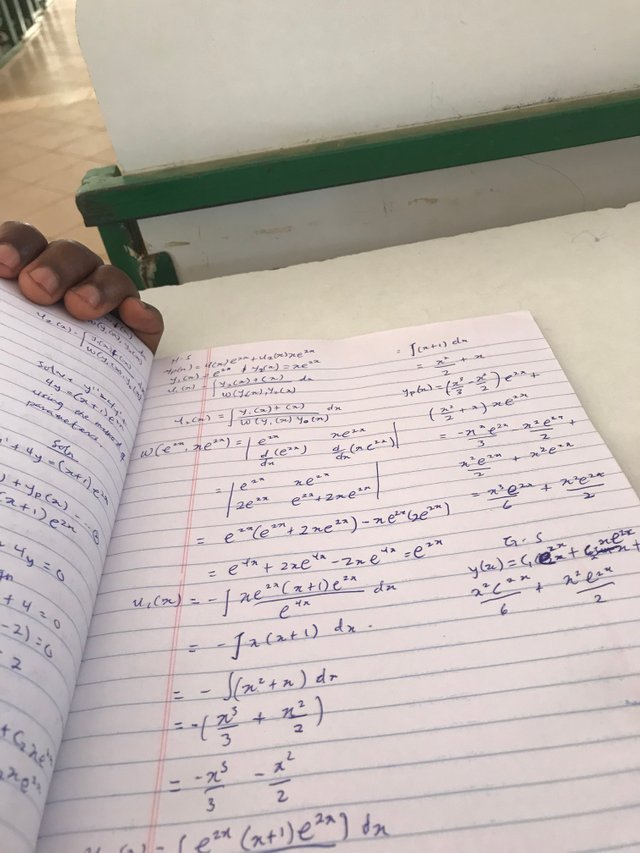 u₂(x) = ∫
Solve y'' - 4y' +
4y = (x+1)e²ˣ
using the method of
parameters.
Soln
+ 4y = (x+1)e²ˣ
+ yp(x) —
(x+1)e²ˣ
4y = 0
+ 4 = 0
-2) = 0
2
+ C₂xe²ˣ
xe²ˣ
yp(x) = u(x)e²ˣ + u₂(x)xe²ˣ
y₁(x) = e²ˣ & y₂(x) = xe²ˣ
u₁(x) = -∫ y₂(x) f(x) / W(y₁(x), y₂(x)) dx
u₂(x) = ∫ y₁(x) f(x) / W(y₁(x) y₂(x)) dx
W(e²ˣ, xe²ˣ) = | e²ˣ  xe²ˣ |
| d/dx (e²ˣ)  d/dx (xe²ˣ) |
= | e²ˣ  xe²ˣ |
| 2e²ˣ  e²ˣ + 2xe²ˣ |
= e²ˣ(e²ˣ + 2xe²ˣ) - xe²ˣ(2e²ˣ)
= e⁴ˣ + 2xe⁴ˣ - 2xe⁴ˣ = e²ˣ
u₁(x) = - ∫ xe²ˣ(x+1)e²ˣ / e⁴ˣ dx
= - ∫ x(x+1) dx.
= - ∫(x² + x) dx
= -( x³/3 + x²/2 )
= -x³/3 - x²/2
= ∫ [e²ˣ (x+1)e²ˣ] dx
= ∫(x+1) dx
= x²/2 + x
yp(x) = (x³/3 - x²/2) e²ˣ +
(x²/2 + x) xe²ˣ
= -x³e²ˣ/3 - x²e²ˣ/2 +
x²e²ˣ/2 + x²e²ˣ
= x³e²ˣ/6 + x²e²ˣ/2
G.S
y(x) = C₁e²ˣ + C₂xe²ˣ +
x²e²ˣ/6 + x²e²ˣ/2